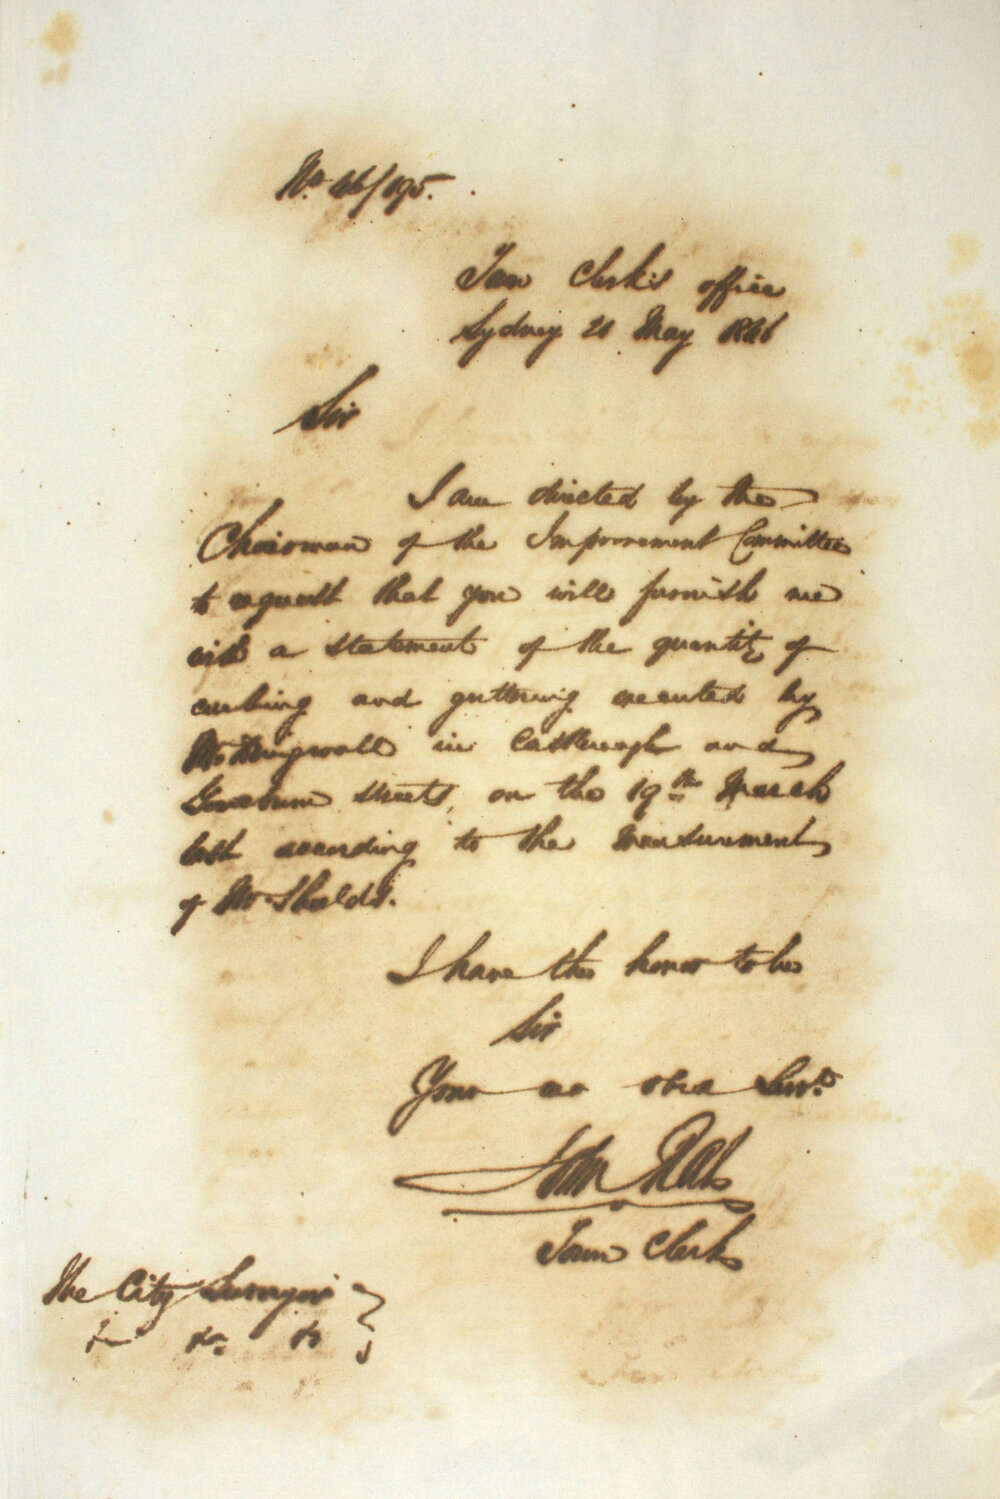 No. 46/195.
Town Clerk's office
Sydney 21 May 1846
Sir
I am directed by the
Chairman of the Improvement Committee
to request that you will furnish me
with a statement of the quantity of
curbing and guttering executed by
Mr in Castlereagh and
Goulburn streets, on the 19th March
last according to the measurement
of Mr Shields.
I have the honor to be
Sir
Your mo obed Servt.
John Rae
Town Clerk
The City Surveyor
&c &c